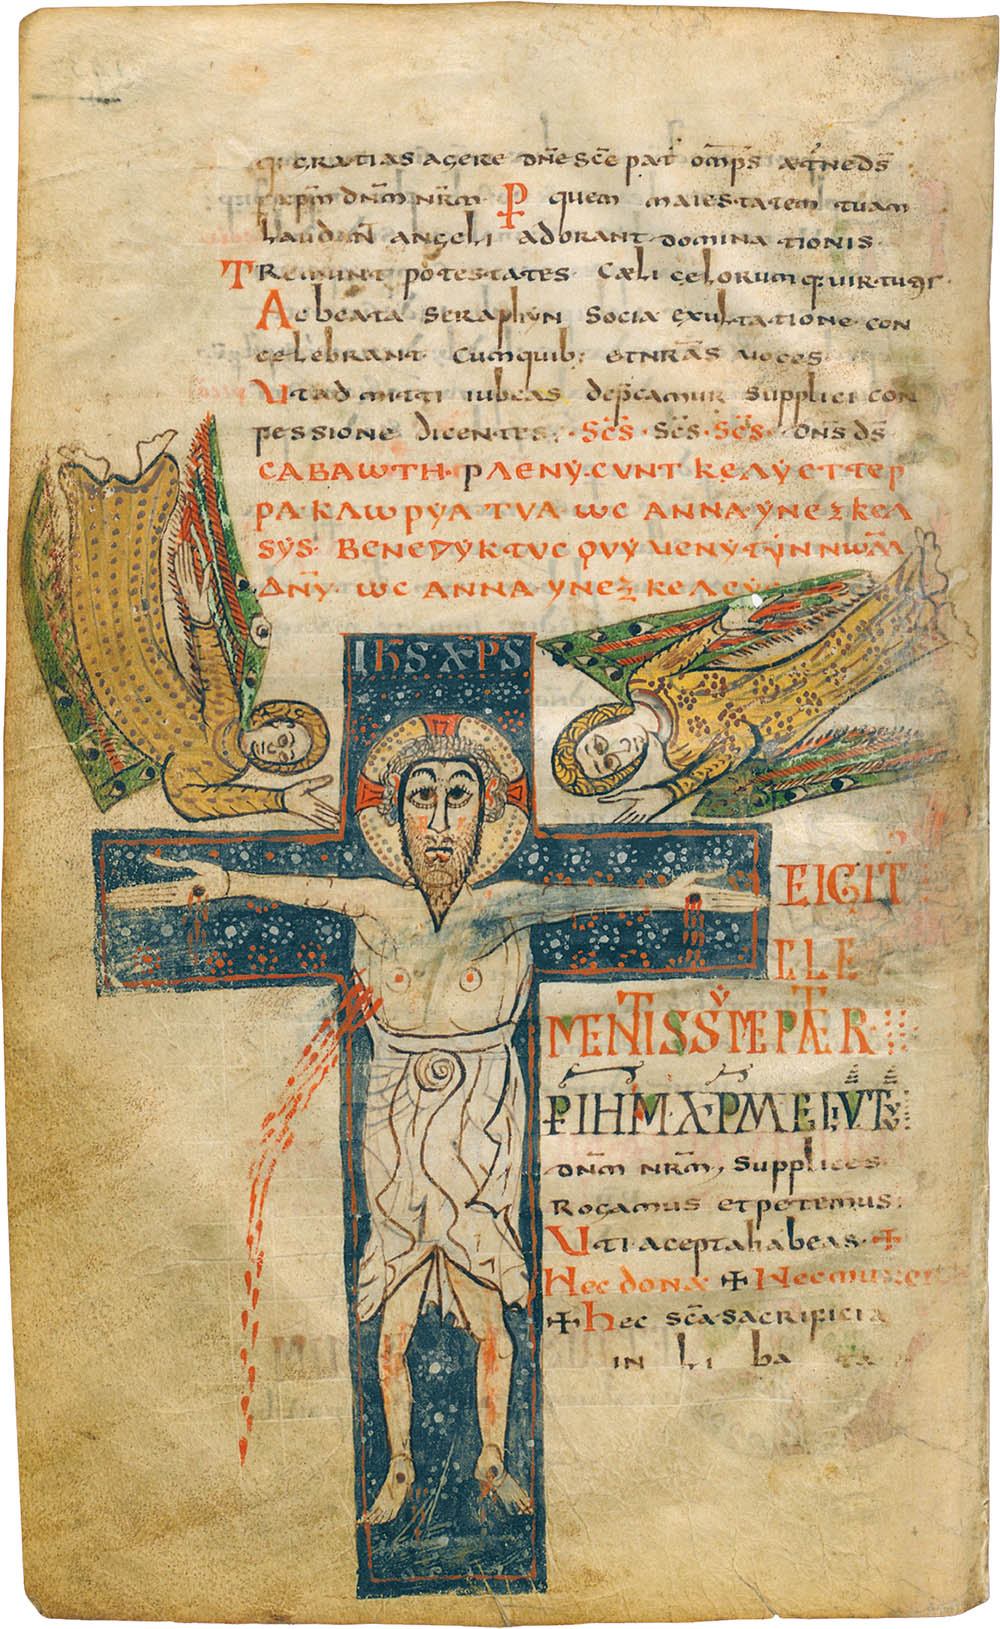 q: gratias agere dn̄e sc̄e pat̄ om̄ps̄ æt̄ne ds̄
p xp̄m dn̄m nr̄m. P quem maiestatem tuam
laudan̄ angeli adorant dominationis
Tremunt potestates Cæli celorumq: uirtutes
Ac beata seraphyn socia exultatione con
celebrant Cum quib: et nr̄as uoces
Ut admitti iubeas dep̄camur supplici con
fessione dicentes. Sc̄s Sc̄s Sc̄s. Dn̄s ds̄
CABAωTH. PΛENY. CVNT KEΛY ET TEP
PA KΛωPYA TVA ωC ANNA YNEξKEΛ
SYS. BENEDYKTVC QVY VENY.T YN NωM̄
ΔN̄Y. ωC ANNA YNEξKEΛ
IHS. XPS
TE IGIT̄
CLE
MENTISSYME PATER
P IHM XPM
dn̄m nr̄m, supplices
Rogamus et petemus:
Uti acepta habeas. ✠
Hec dona ✠ Hec munera
✠ Hec sc̄a sacrificia
in li ba ta